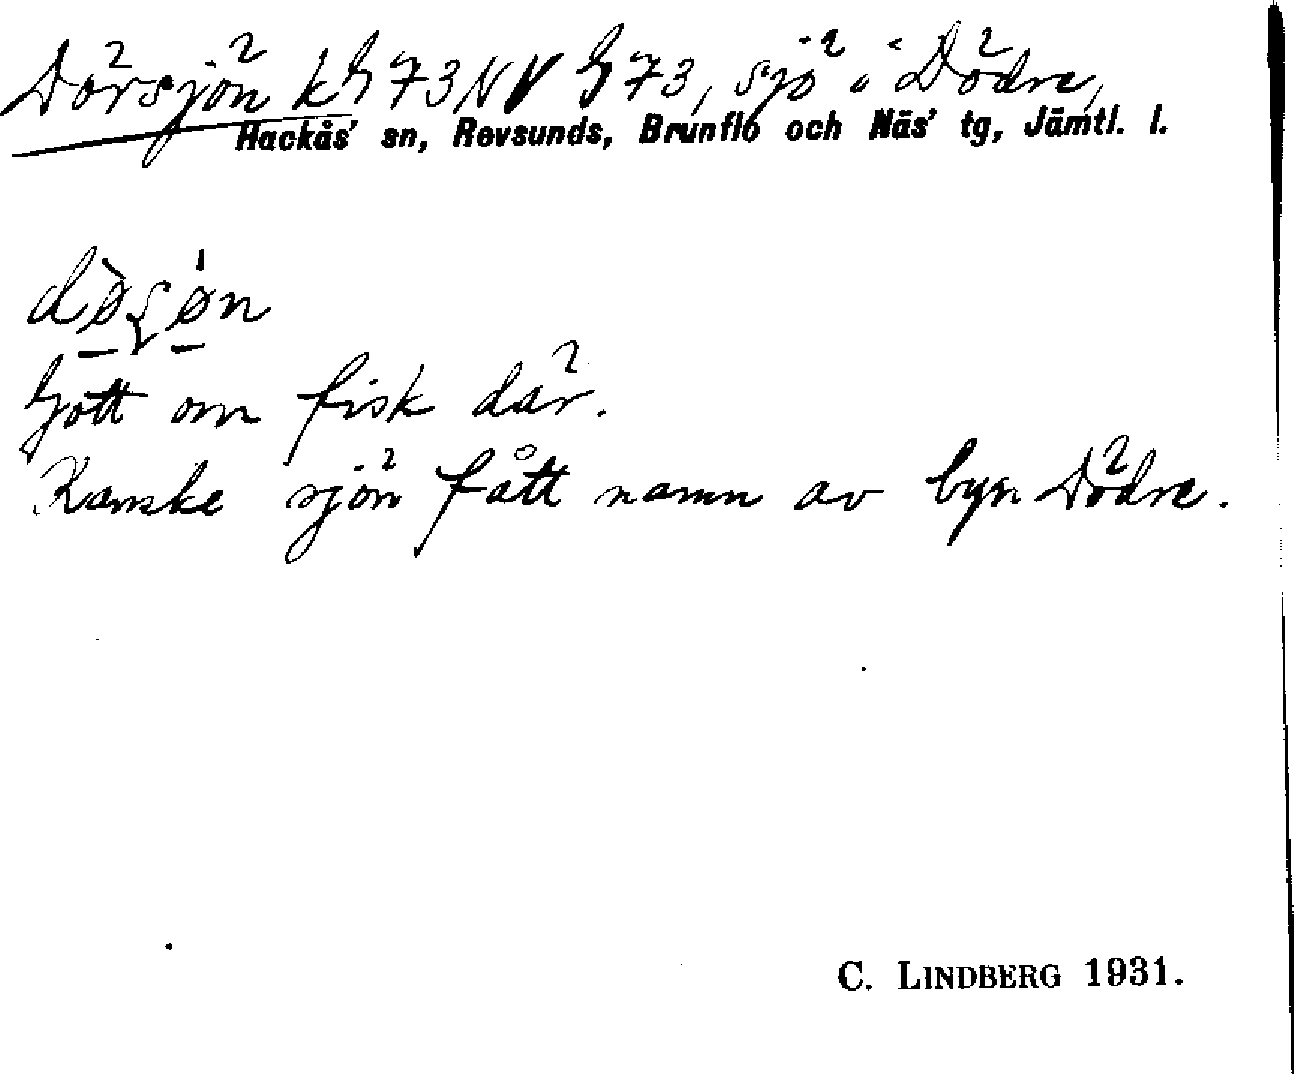 Dörsjön kG 73 NV G 73, sjö i Dödre,
Hackås' sn, Revsunds, Brunflo och Näs' tg, Jämtl. l.
Gott om fisk där.
Kanske sjön fått namn av byn Dödre.
C. LINDBERG 1931.